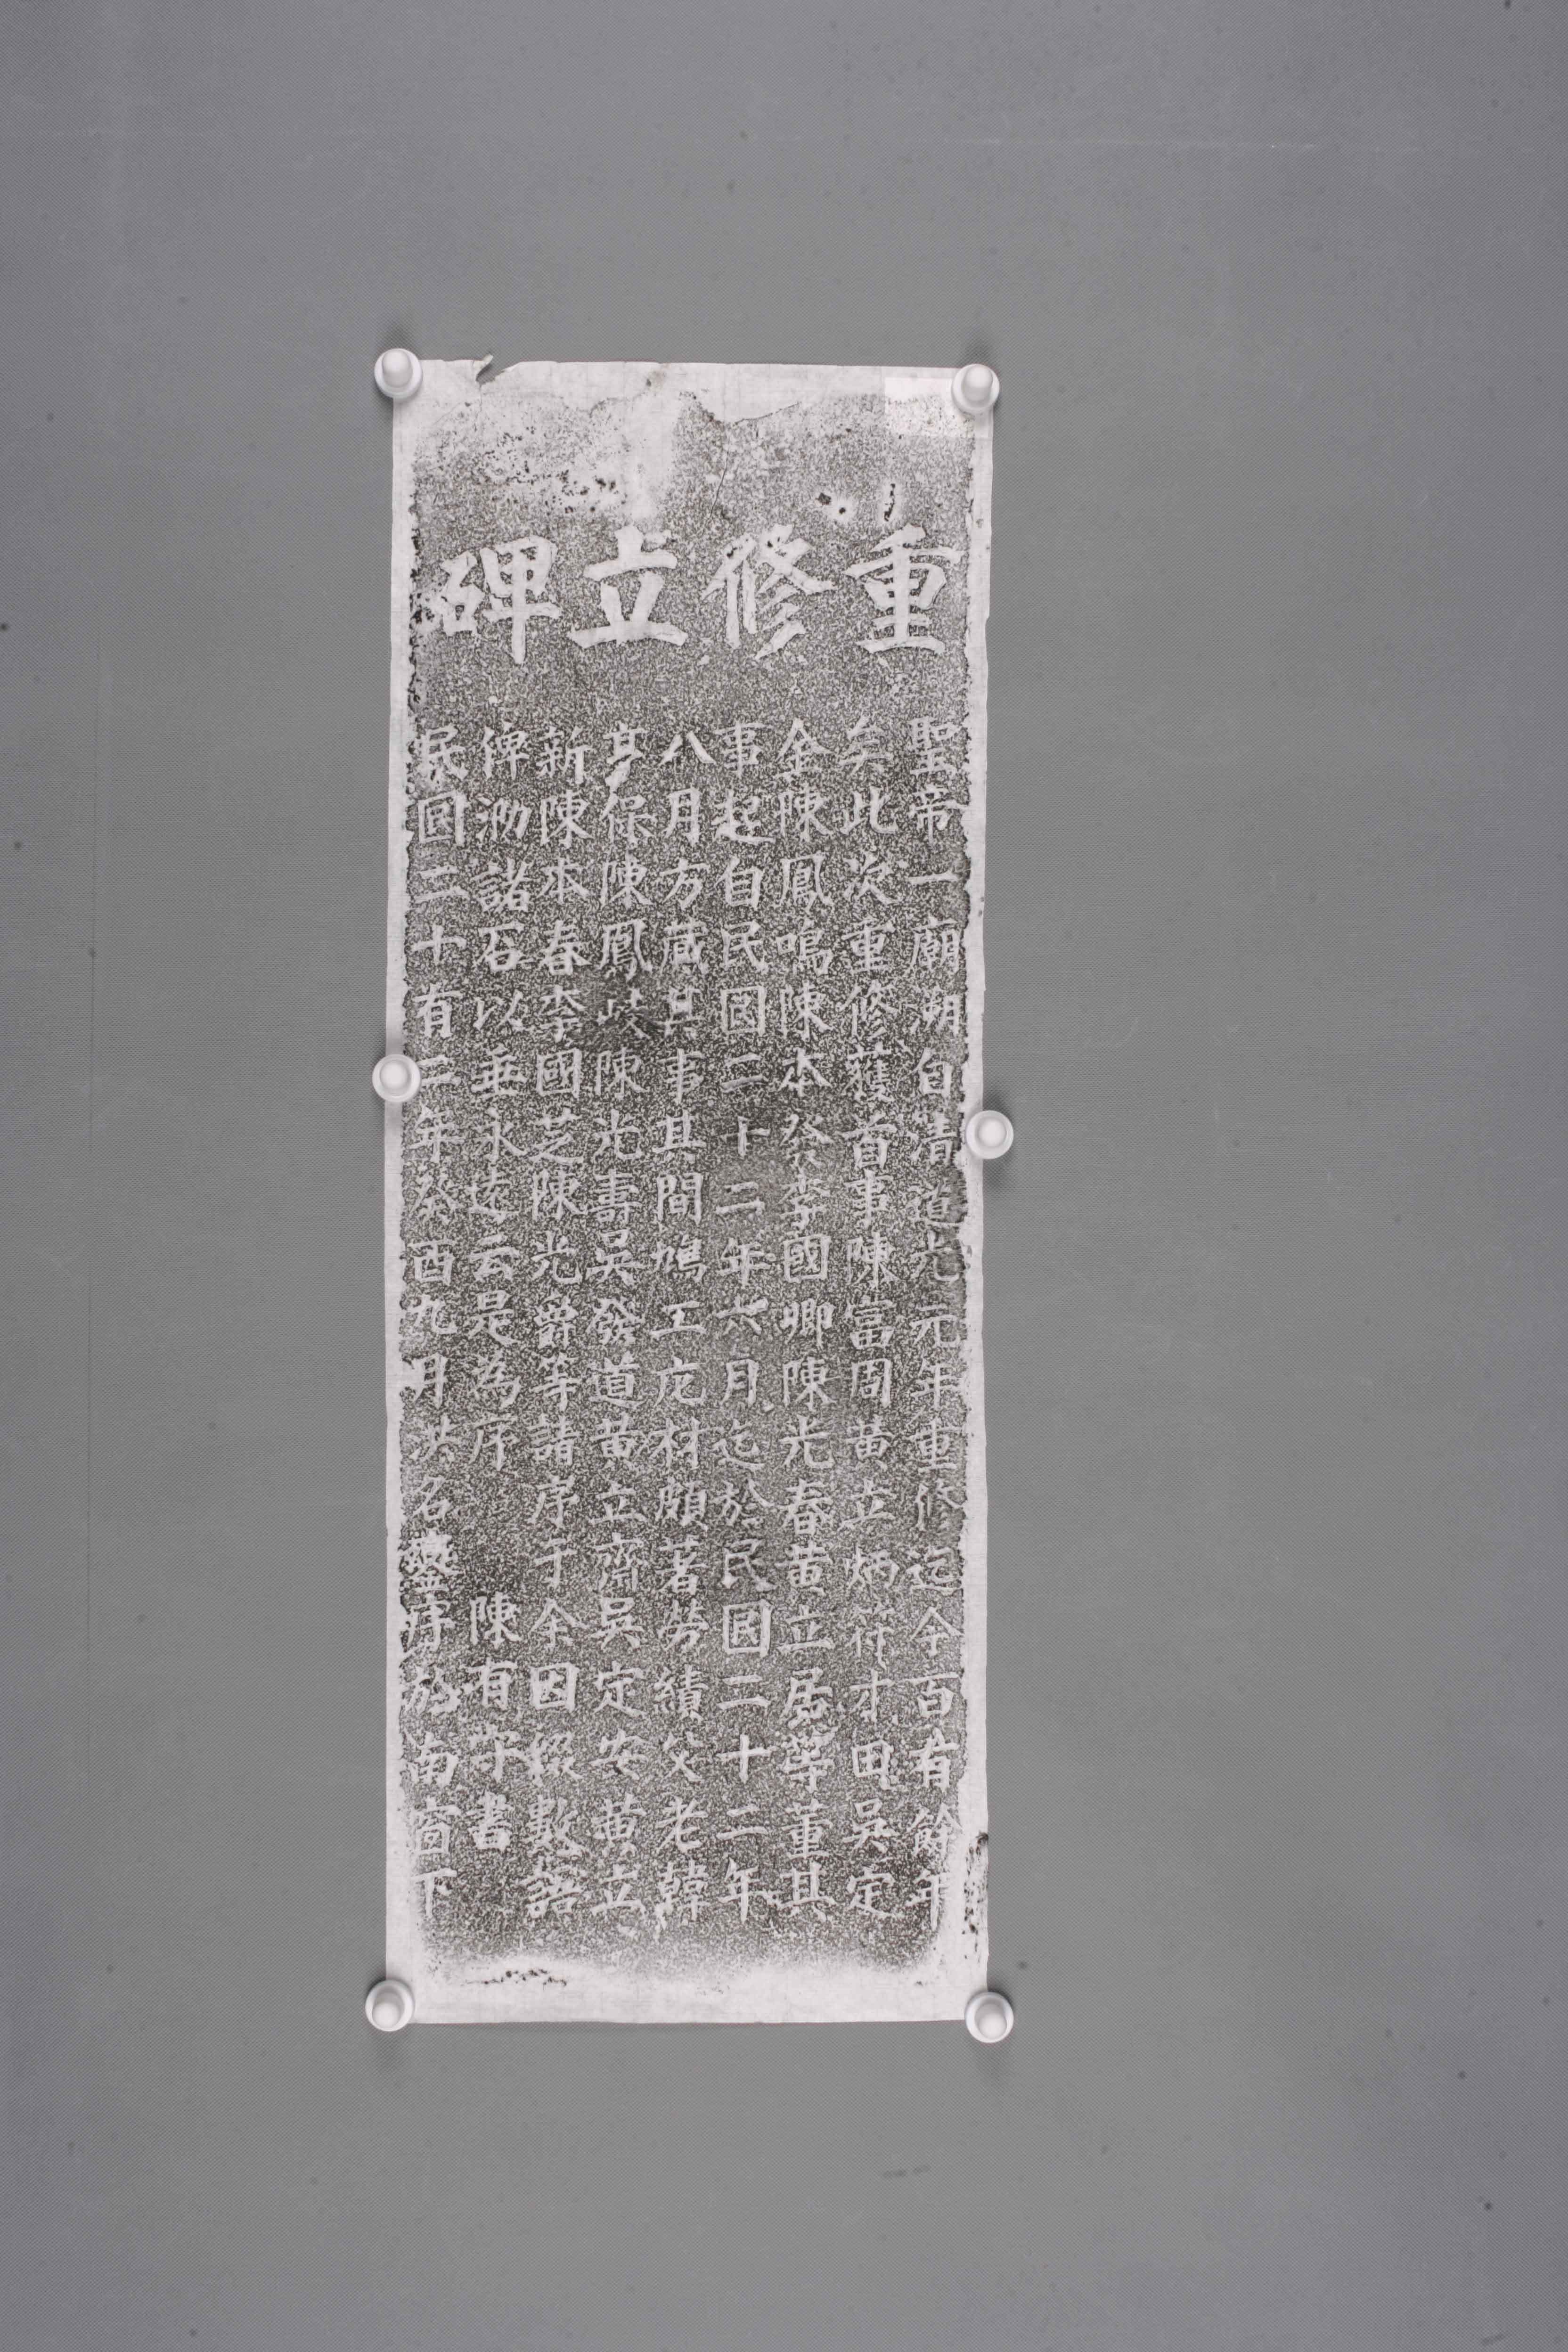 重修立碑
聖帝一廟溯自清道光元年重修迄今百有餘年
矣此次重修蒦首事陳富周黃立炳符才田吳定
金陳鳳鳴陳本發李國卿陳光春黃立居等董其
事起自民國二十二年六月迄於民國二十二年
八月方蕆其事其間鳩工庀材頗著勞績父老韓
亨保陳鳳岐陳光壽吳發道黃立齋吳定安黃立
新陳本春李國芝陳光爵等諸序于余因綴數語
俾泐諸石以垂永遠云是為序 陳有 書
民國二十有二年癸酉九月 名 序於南窗下